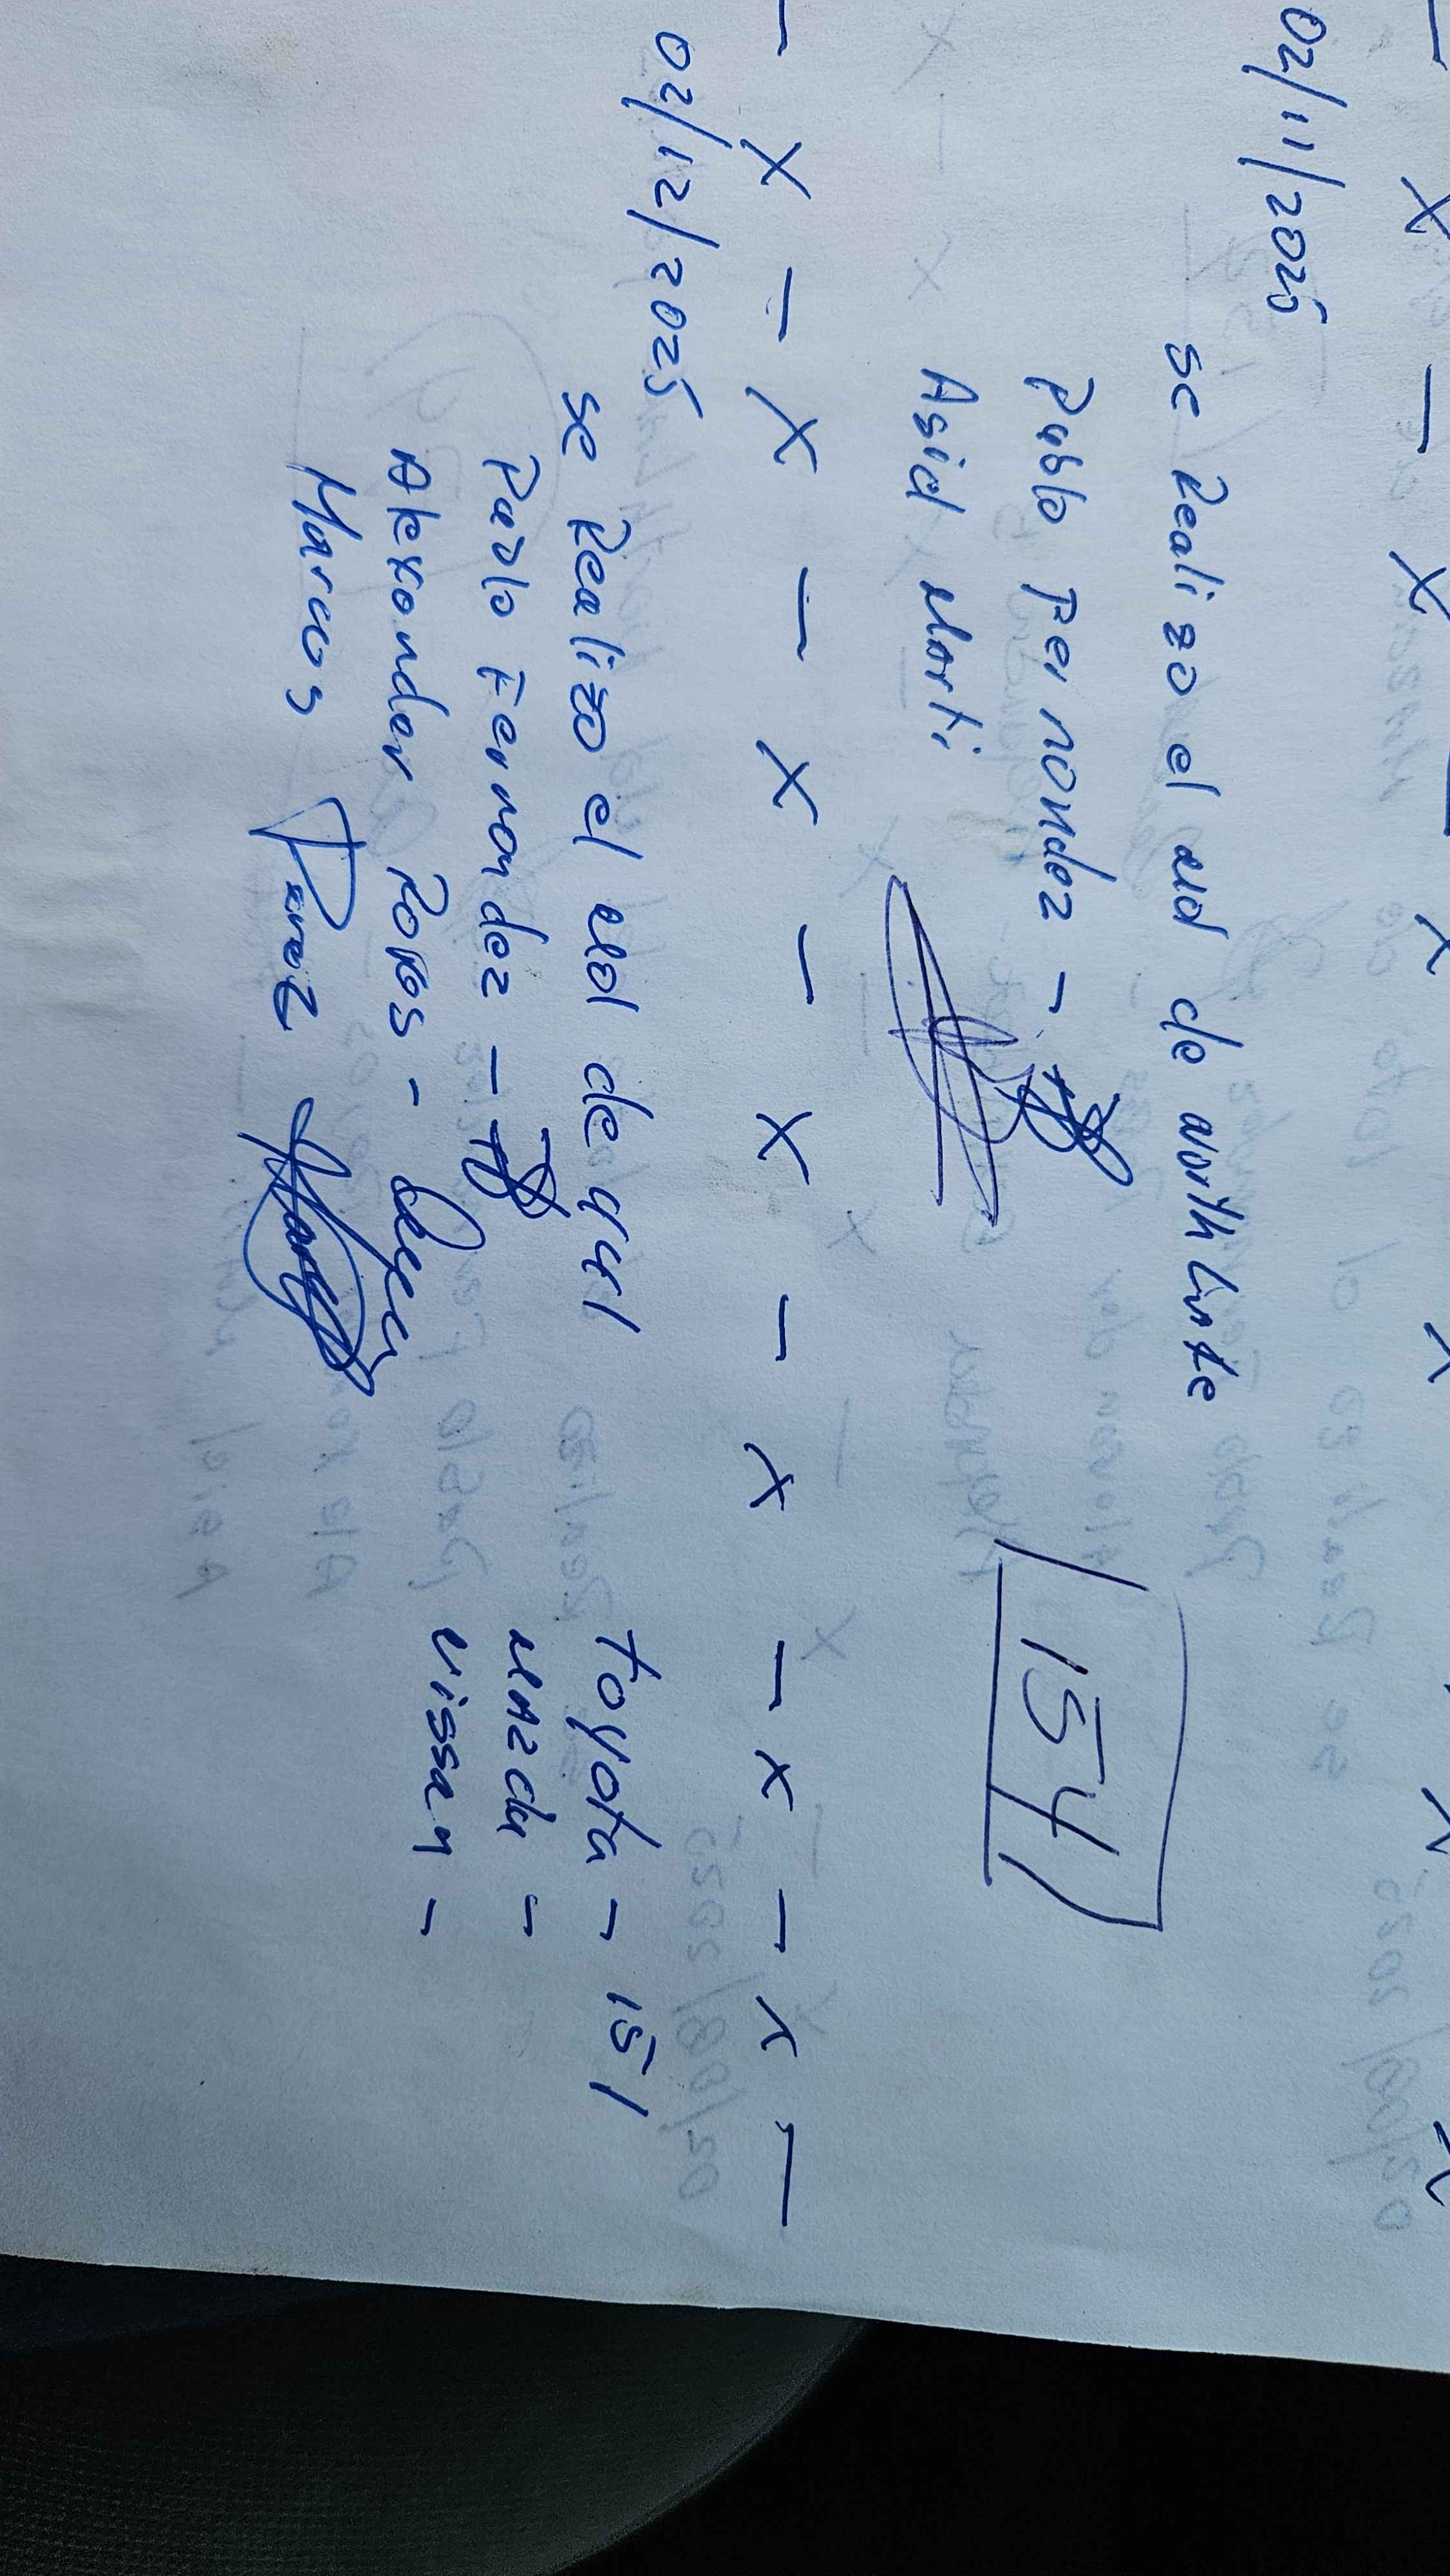 02/11/2025
se Realizo el MD de northlinte
Pablo Fernandez -
Asid Marti
154
- x - x - x - x - x - x - x -
02/12/2025
se Realizo el MD de 441
Pablo Fernandez -
Alexander Robos -
Marcos Perez
Toyota - 151
Mazda -
Nissan -